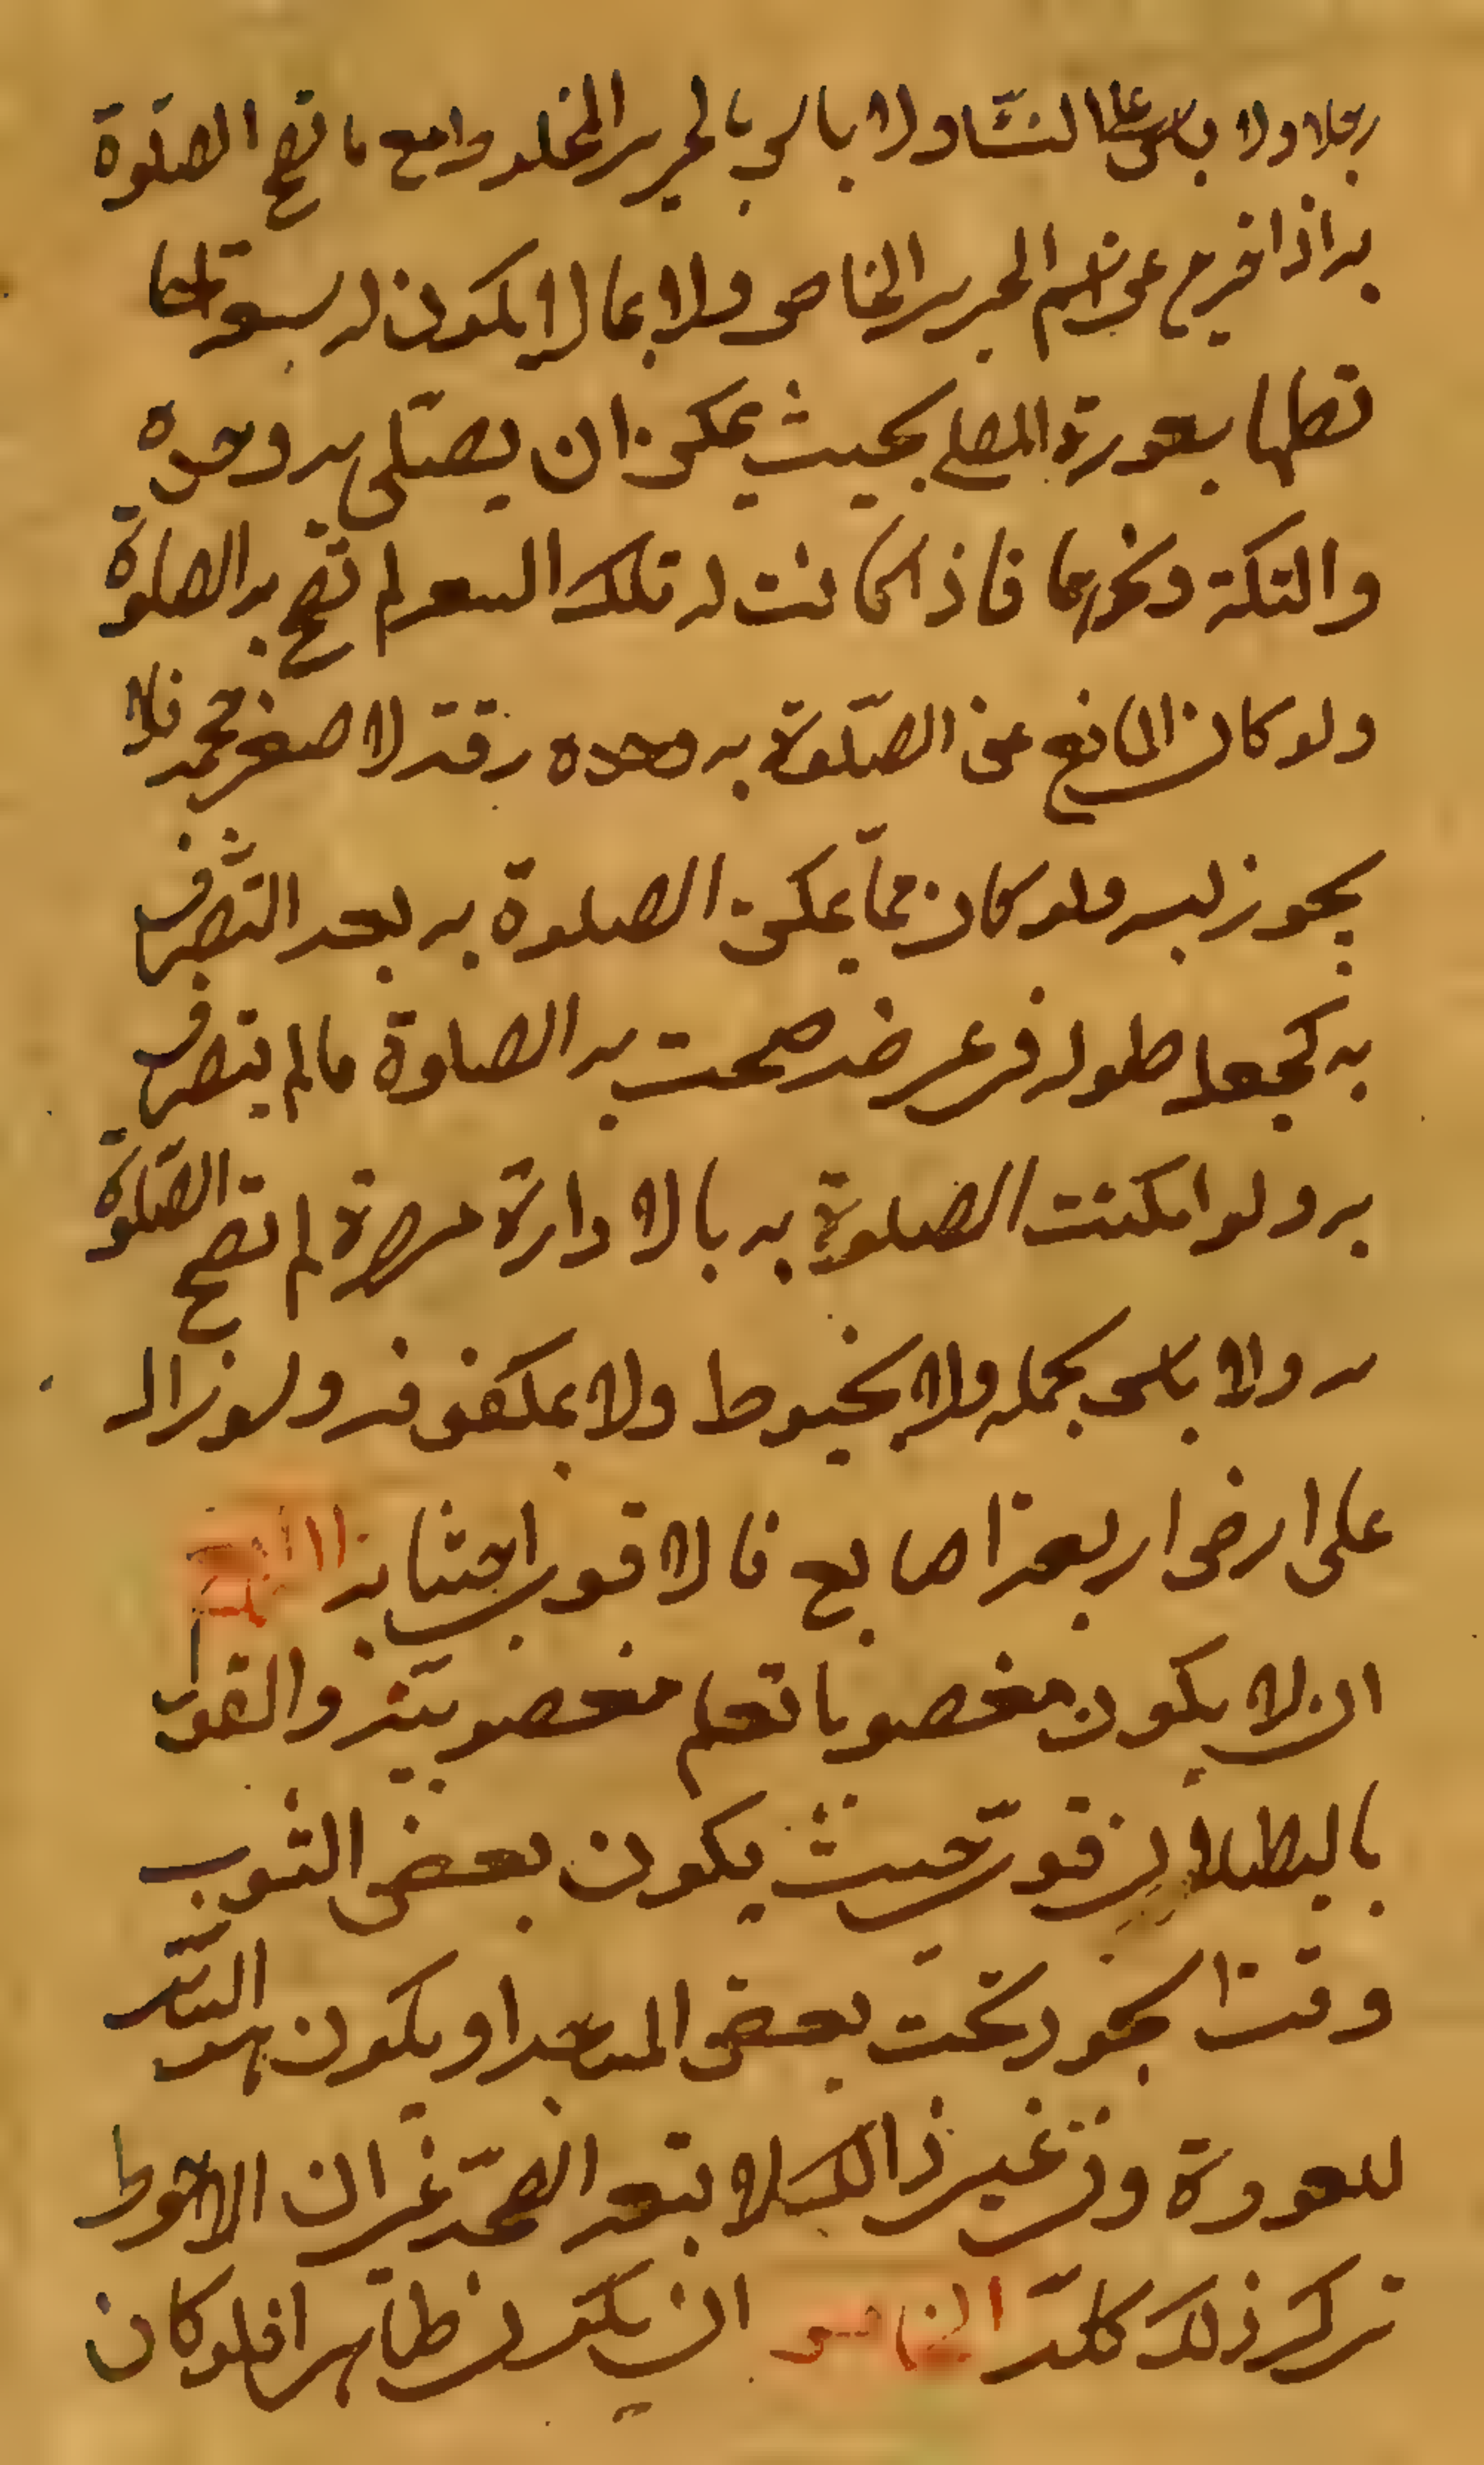 رجلا ولا باس على النسا ولا باس بالحرير المخلو وامع ما تصح الصلوة
به اذا خرج عن اسم الحرير الخاص ولا بما لا يكون له سعة
بعورة المصلي بحيث يمكن ان يصلى به وحده
والتكة ونحوهما فاذا كانت له تلك السعه لم تصح به الصلوة
ولو كان المانع عن الصلوة به وحده رقته لا صغر حجمه فلا
يجوز لبسه ولو كان مما يمكن الصلوة به بعد التصرف
به كجعل طوله في عرضه صحت به الصلوة ما لم يتصرف
به ولو امكنت الصلوة به بالادارة مرة لم تصح الصلوة
به ولا باس بحمله ولا بخيوط ولا بمكفوف به ولو زاد
على ارض اربعة اصابع فالاقوى اجتنابه
ان لا يكون مغصوبا تعلم مغصوبيته والقول
بالبطلان قوى حيث يكون بعض الثوب
وقت السجود تحت بعض المساجد او يكون هو الساتر
للعورة وفي غير ذلك لا تبعد الصحة غير ان الاحوط
ترك ذلك كله الخامس ان يكون طاهرا فلو كان